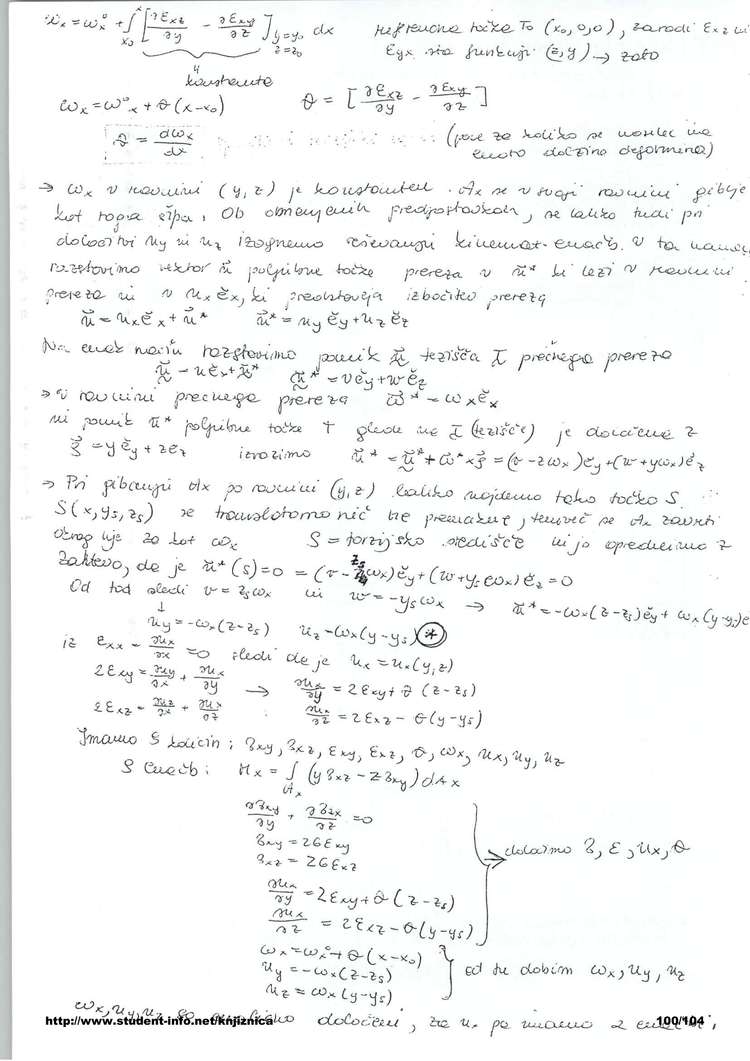 ωx = ωx° + ∫x₀ˣ [∂Exz/∂y − ∂Exy/∂z] y=y₀ z=z₀ dx referenčna točka T₀ (x₀,0,0), zaradi Exz in
Eyx sta funkciji (z,y) → zato
konstanta
ωx = ω°x + θ(x−x₀) θ = [∂Exz/∂y − ∂Exy/∂z]
θ = dωx/dx (pove za koliko se nosilec na
enoto dolžine deformira)
→ ωx v ravnini (y,z) je konstanten. Ax se v svoji ravnini giblje
kot toga šipa. Ob omenjenih predpostavkah, se lahko tudi pri
določitvi uy in uz izognemo reševanju kinemat. enačb. V ta namen
razstavimo vektor u⃗ poljubne točke prereza v u⃗* ki leži v ravnini
prereza in v ux e⃗x, ki predstavlja izbočitev prereza
u⃗ = ux e⃗x + u⃗* u⃗* = uy e⃗y + uz e⃗z
Na enak način razstavimo pomik u⃗ težišča T prečnega prereza
u⃗ = u e⃗x + u⃗* u⃗* = v e⃗y + w e⃗z
→ v ravnini prečnega prereza ω⃗* = ωx e⃗x
in pomik u⃗* poljubne točke T glede na T (težišče) je določena z
ρ⃗ = y e⃗y + z e⃗z izrazimo u⃗* = u⃗* + ω⃗* × ρ⃗ = (v − zωx) e⃗y + (w + yωx) e⃗z
→ Pri gibanju Ax po ravnini (y,z) lahko najdemo tako točko S
S(x, ys, zs) se translatorno nič ne premakne, temveč se Ax zavrti
okrog nje za kot ωx S = torzijsko središče in jo opredelimo z
zahtevo, da je u⃗*(s) = 0 = (v − zsωx) e⃗y + (w + ysωx) e⃗z = 0
Od tod sledi v = zsωx in w = −ysωx → u⃗* = −ωx(z−zs) e⃗y + ωx(y−ys) e
↓
uy = −ωx(z−zs) uz = ωx(y−ys) (*)
iz Exx = ∂ux/∂x = 0 sledi da je ux = ux(y,z)
2Exy = ∂uy/∂x + ∂ux/∂y → ∂ux/∂y = 2Exy + θ(z−zs)
2Exz = ∂uz/∂x + ∂ux/∂z ∂ux/∂z = 2Exz − θ(y−ys)
Imamo 9 količin: σxy, σxz, Exy, Exz, θ, ωx, ux, uy, uz
9 enačb: Mx = ∫Ax (yσxz − zσxy) dAx
∂σxy/∂y + ∂σzx/∂z = 0
σxy = 2GExy
σxz = 2GExz
→ določimo σ, E, ux, θ
∂ux/∂y = 2Exy + θ(z−zs)
∂ux/∂z = 2Exz − θ(y−ys)
ωx = ωx° + θ(x−x₀)
uy = −ωx(z−zs) od tu dobim ωx, uy, uz
uz = ωx(y−ys)
ωx, uy, uz so določeni, za ux pa imamo 2 enačbi,
http://www.student-info.net/knjiznica 100/104